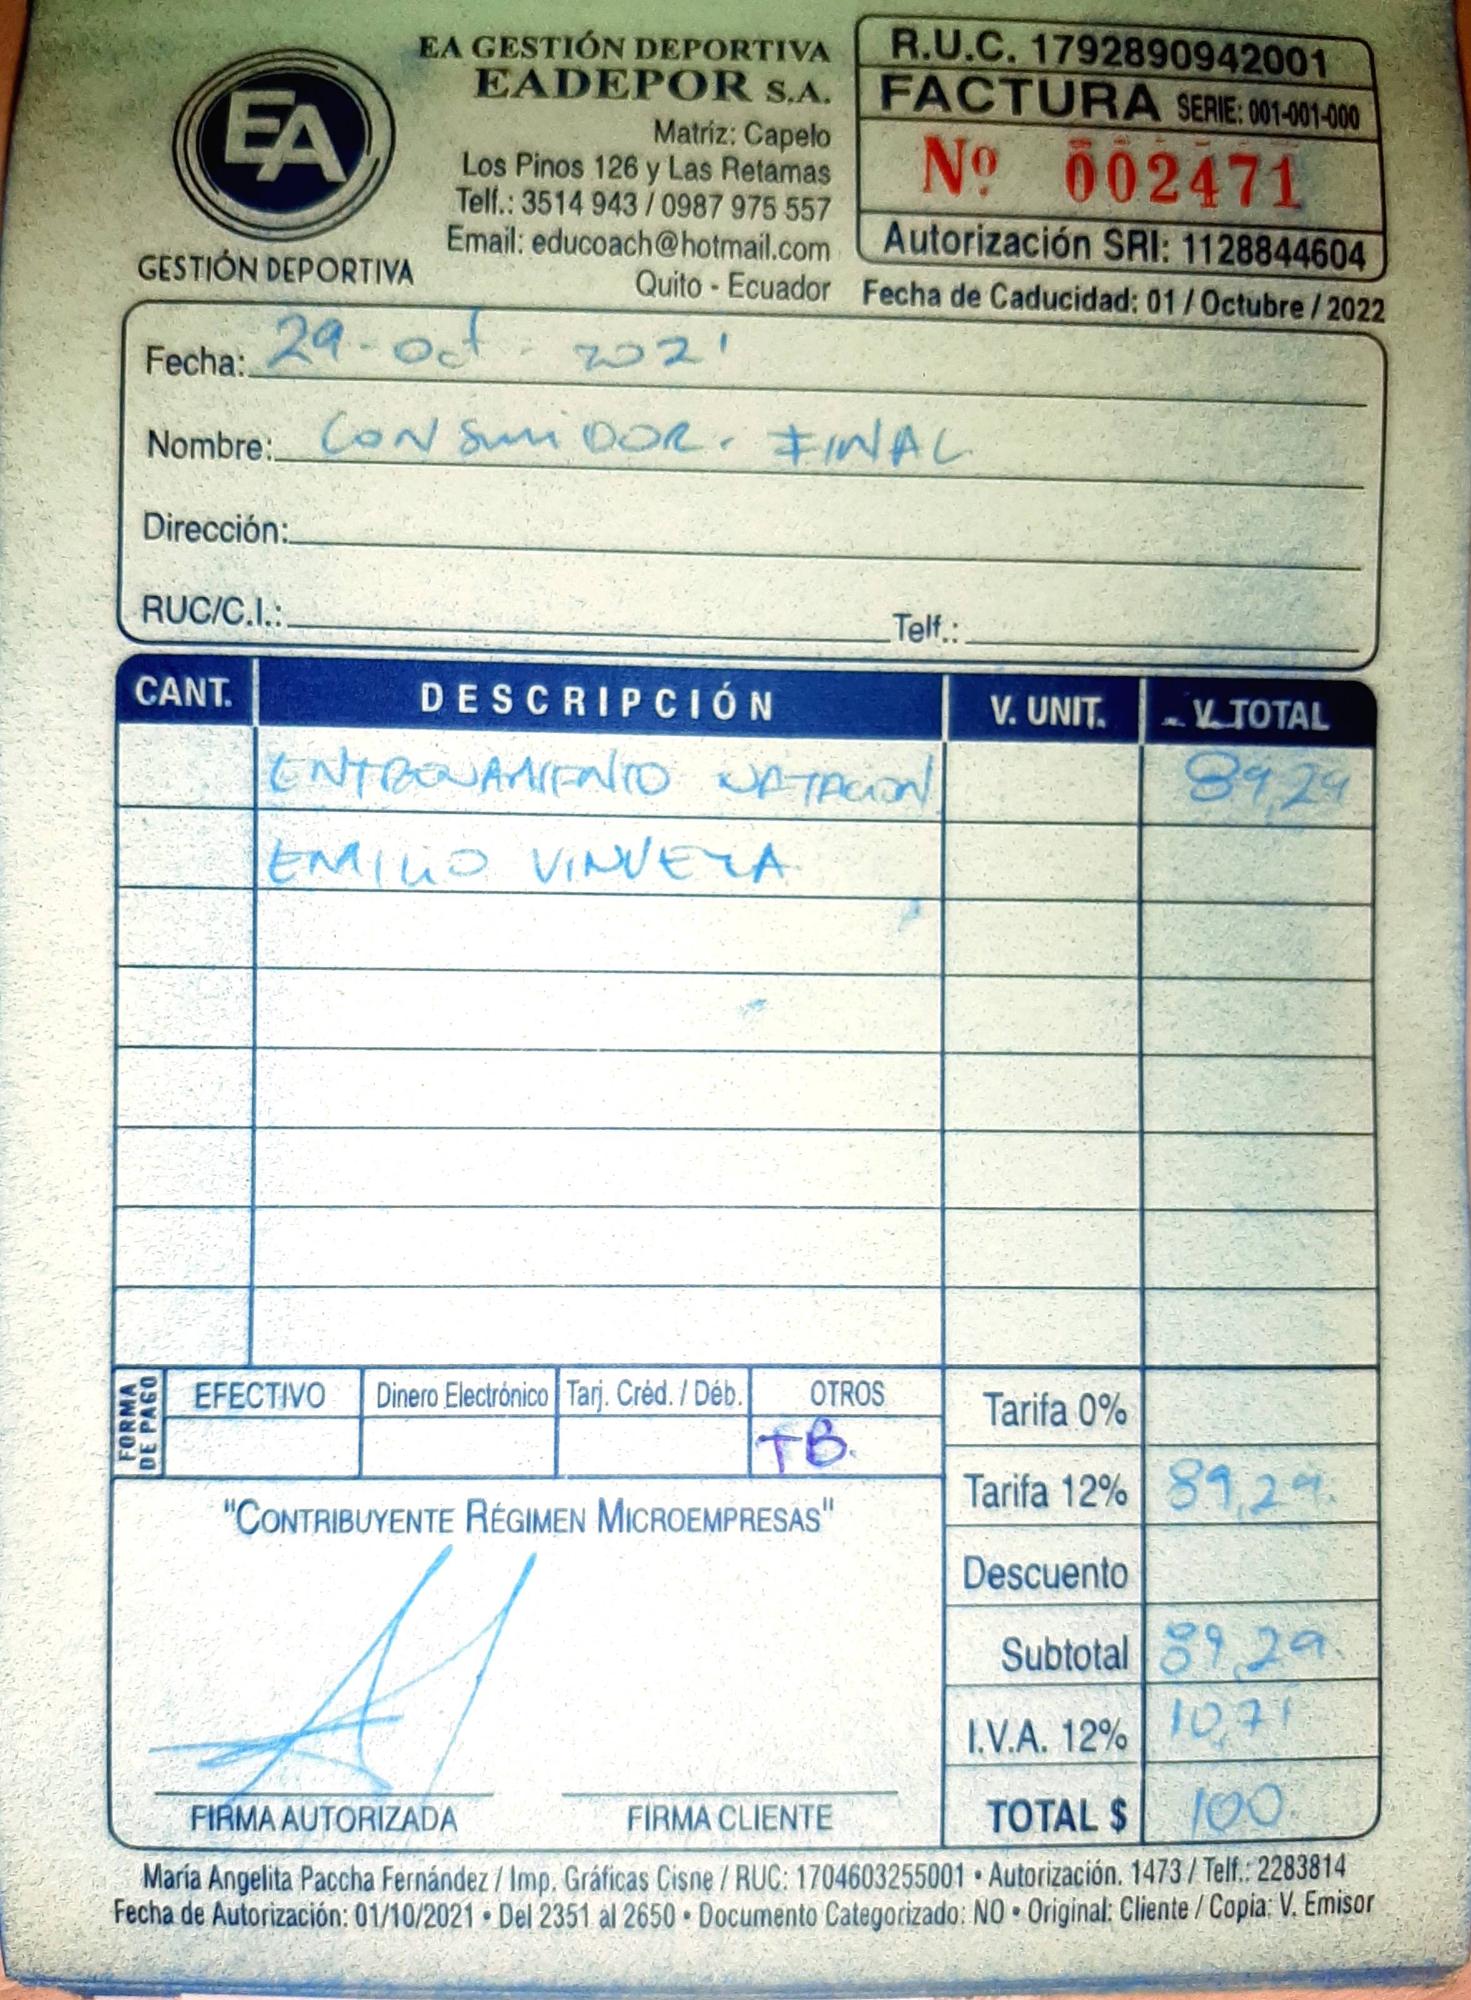 EA
GESTIÓN DEPORTIVA
EA GESTIÓN DEPORTIVA
EADEPOR S.A.
Matríz: Capelo
Los Pinos 126 y Las Retamas
Telf.: 3514 943 / 0987 975 557
Email: educoach@hotmail.com
Quito - Ecuador
R.U.C. 1792890942001
FACTURA SERIE: 001-001-000
Nº 002471
Autorización SRI: 1128844604
Fecha de Caducidad: 01 / Octubre / 2022
Fecha: 29-Oct-2021
Nombre: CONSUMIDOR. FINAL
Dirección:
RUC/C.I.: Telf.:
CANT. DESCRIPCIÓN V. UNIT. V. TOTAL
ENTRENAMIENTO NATACION 89,29
EMILIO
FORMA DE PAGO EFECTIVO Dinero Electrónico Tarj. Créd. / Déb. OTROS
TB.
Tarifa 0%
Tarifa 12% 89,29.
Descuento
Subtotal 89,29.
I.V.A. 12% 10,71
TOTAL $ 100
"CONTRIBUYENTE RÉGIMEN MICROEMPRESAS"
FIRMA AUTORIZADA FIRMA CLIENTE
María Angelita Paccha Fernández / Imp. Gráficas Cisne / RUC: 1704603255001 • Autorización. 1473 / Telf.: 2283814
Fecha de Autorización: 01/10/2021 • Del 2351 al 2650 • Documento Categorizado: NO • Original: Cliente / Copia: V. Emisor